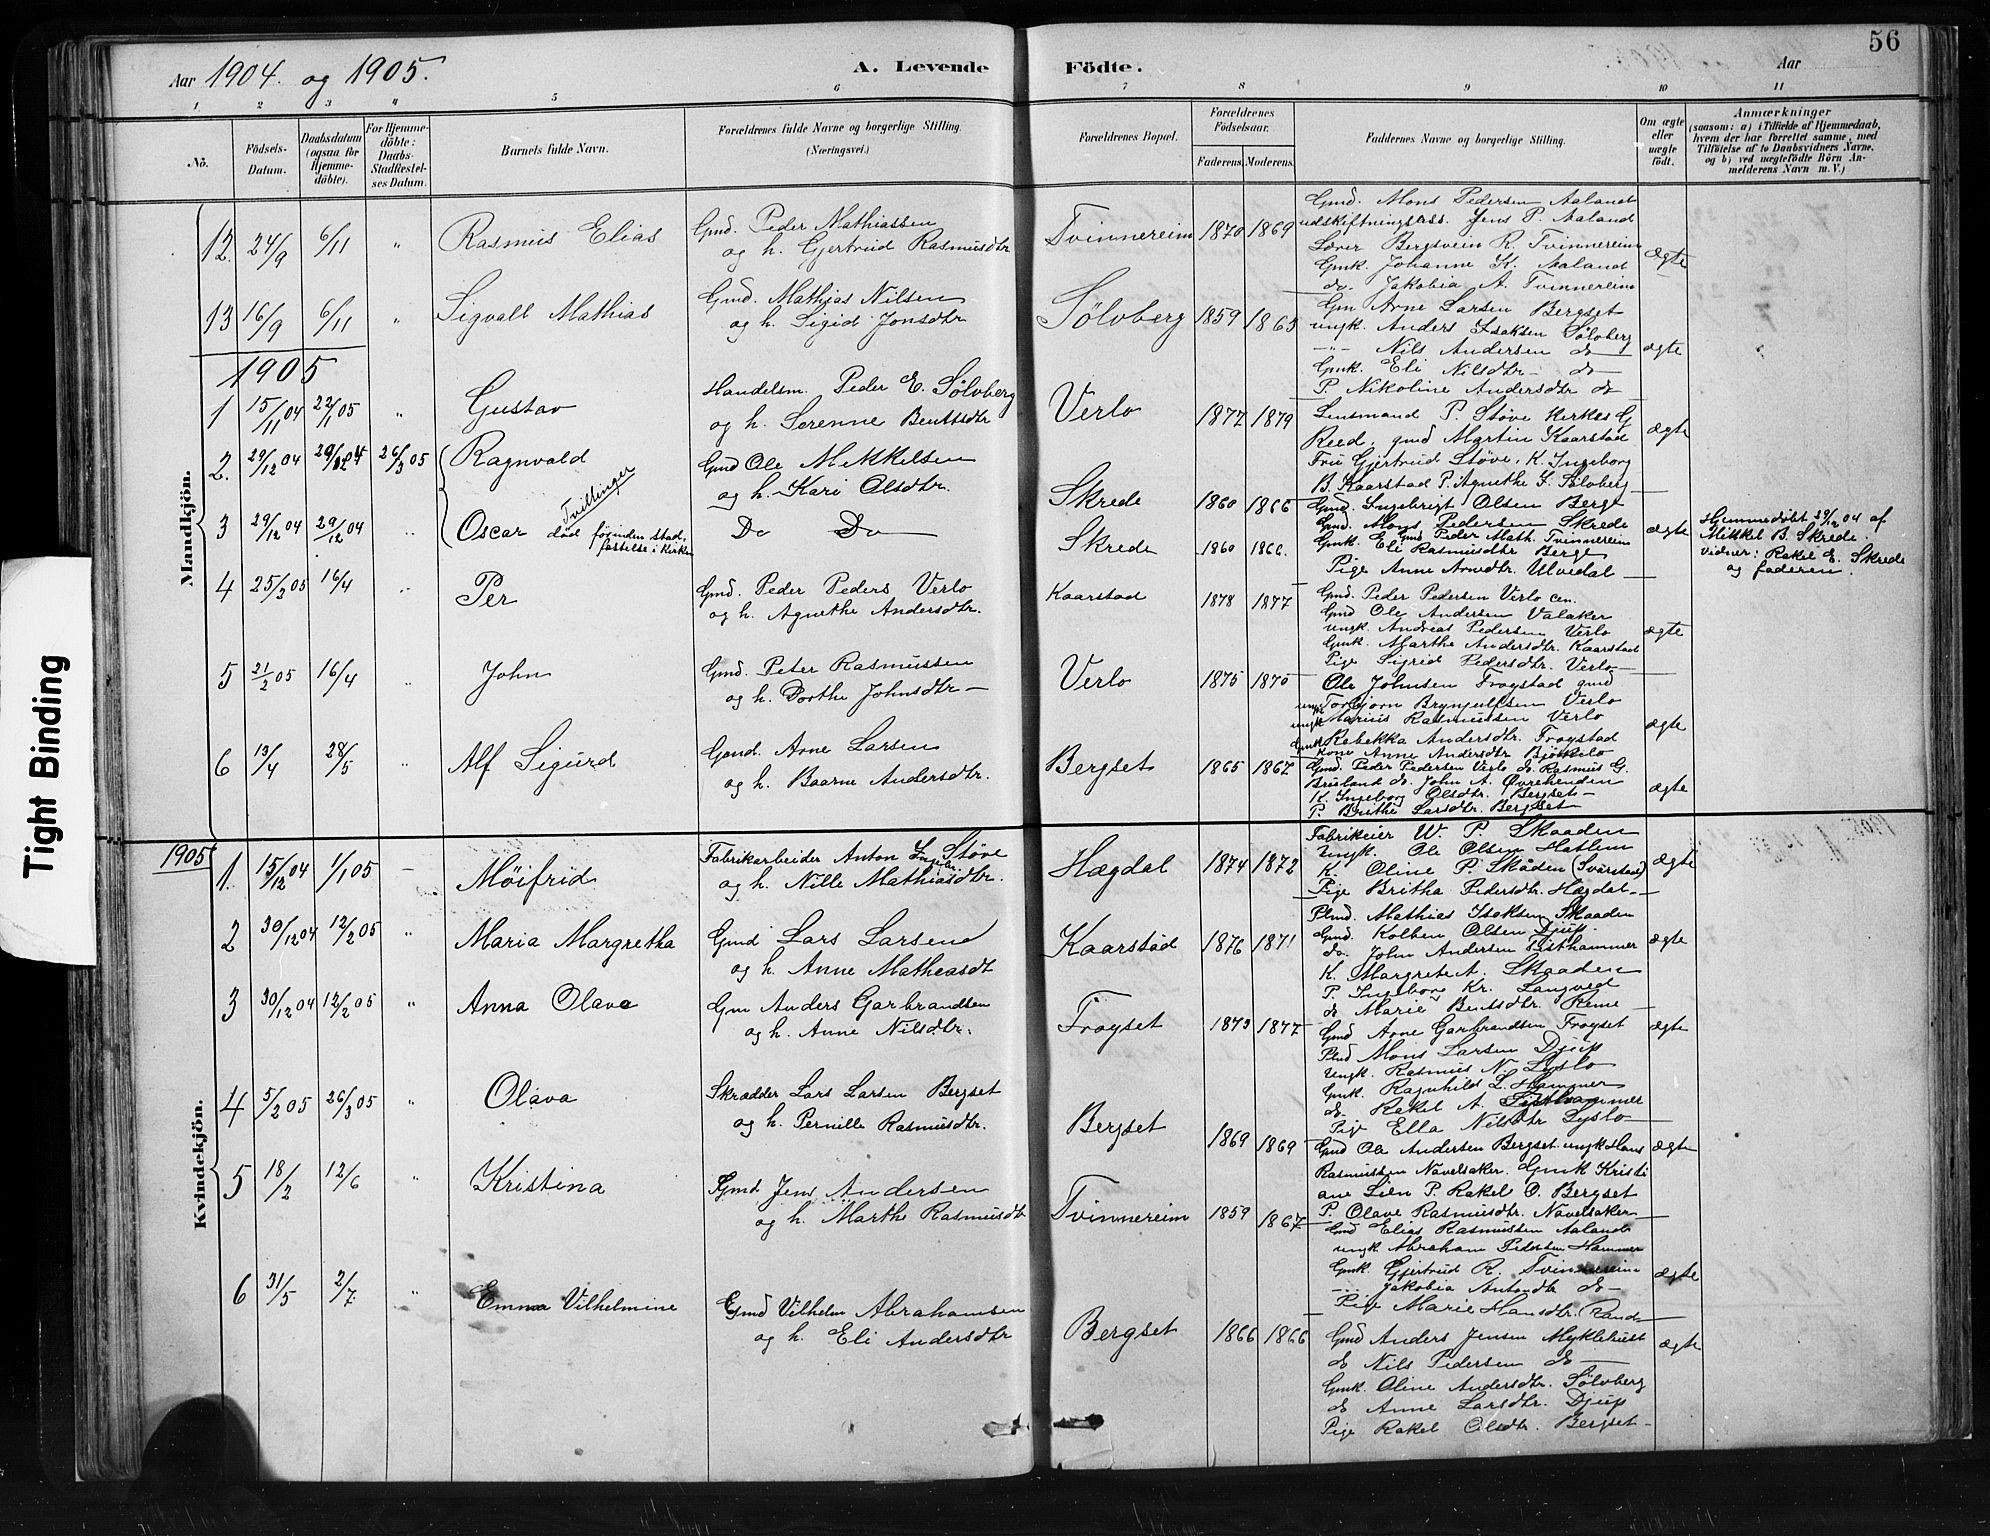 56
Aar 1904. og 1905.
A. Levende Födte.
Aar
1 2 3 4 5 6 7 8 9 10 11
No.
Födsels-Datum.
Daabsdatum (ogsaa for Hjemme-döbte).
For Hjemme-döbte: Daabs-Stadfæstel-ses Datum.
Barnets fulde Navn.
Forældrenes fulde Navne og borgerlige Stilling. (Næringsvei.)
Forældrenes Bopæl.
Forældrenes Födselsaar.
Faderens. Moderens.
Faddernes Navne og borgerlige Stilling.
Om ægte eller uægte födt.
Anmærkninger
(saasom: a) i Tilfælde af Hjemmedaab, hvem der har forrettet samme, med Tilföielse af to Daabsvidners Navne, og b) ved uægtefödte Börn An-melderens Navn m. V.)
Mandkjön.
12. 24/9 6/11 " Rasmus Elias
Gmd. Peder Mathiassen
og h. Gjertrud Rasmusdtr
Tvinnereim 1870 1869
Gmd. Mons Pedersen Aaland
udskiftningsass. Jens P. Aaland
Lærer Bergsvein R. Tvinnereim
Gmk. Johanne K. Aaland
do. Jakobia A. Tvinnereim
ægte
13 16/9 6/11 " Sigvall Mathias
Gmd. Mathias Nilsen
og h. Sigid Jonsdtr
Sølvberg 1859 1865
Gm Arne Larsen Bergset
ungk. Anders Isaksen Sølvberg
-"- Nils Andersen do
Gmk. Eli Nilsdtr - do
P. Nikoline Andersdtr do
ægte
1905
1 15/11 04 22/1 05 " Gustav
Handelsm. Peder E. Sølvberg
og h. Serenne Bentsdtr
Verlo 1877 1879
Lensmand P. Støve Kirkes G
Reed, gmd Martin Kaarstad
Fru Gjertrud Støve, K. Ingeborg
B. Kaarstad P. Agnethe S. Sølvberg
ægte
2. 29/12 04 29/12 04 26/3 05 Ragnvald
Tvillinger
Gmd Ole Mikkelsen
og h. Kari Olsdtr.
Skrede 1860 1866
3 29/12 04 29/12 04 " Oscar død førinden stad-
fæstelse i Kirken
Do Do
Skrede 1860 1866.
Gmd. Ingebrigt Olsen Berge
Gmd. Mons Pedersen Skrede
Gmd Peder Math. Tvinnereim
Gmk. Eli Rasmusdtr Berge
Pige Anne Arnedtr. Ulvedal
ægte
Hjemmedøbt 29/12 04 af
Mikkel B. Skrede.
Vidner: Rakel E. Skrede
og faderen.
4 25/2 05 16/4 " Per
Gmd. Peder Peders Verlo
og h. Agnethe Andersdtr.
Kaarstad 1878 1877
Gmd. Peder Pedersen Verlo sen.
Gmd Ole Andersen Valaker
ungk. Andreas Pedersen Verlo
Gmk. Marthe Andersdtr. Kaarstad
Pige Sigrid Pedersdtr. Verlo
ægte
5 21/2 05 16/4 " John
Gmd. Peter Rasmussen
og h. Dorthe Johnsdtr
Verlo 1875 1870
Ole Johnsen Frøystad gmd
ungk Torbjørn Brynjulfsen Verlo
ungk Marius Rasmussen Verlo
Gmk Rebekka Andersdtr. Frøystad
Kone Anne Andersdtr Bjørkelo
ægte
6 13/4 28/5 " Alf Sigurd
Gmd. Arne Larsen
og h. Baarne Andersdtr.
Bergset 1865 1867
Gmd. Peder Pedersen Verlo do Rasmus G.
do. John A. Øvrehenden
K. Ingeborg Olsdtr. Bergset
P. Brithe Larsdtr. Bergset
ægte
Kvindekjön.
1905
1. 15/12 04 1/1 05 - Møifrid
Fabrikarbeider Anton L. Støve
og h. Nille Mathiasdtr.
Hægdal 1874 1872
Fabrikeier W. P. Skaaden
Ungk. Ole Olsen Hatlem
K. Oline P. Skåden (Svarstad)
Pige Britha Pedersdtr. Hægdal
ægte
2 30/12 04 12/2 05 " Maria Margretha
Gmd Lars Larsen
og h. Anne Matheasdt
Kaarstad 1876 1871
Plmd. Mathias Isaksen Skaaden
Gmd. Kolben Olsen Djup
do. John Andersen Fisthammer
K. Margrete A. Skaaden
P. Ingeborg Kr. Langved
do Marie Bentsdtr. Reme
ægte
3 30/12 04 12/2 05 " Anna Olava
Gm Anders Garbrandsen
og h. Anne Nilsdtr.
Frøyset 1873 1877
Gmd Arne Garbrandsen Frøyset
Plmd Mons Larsen Djup
Ungk. Rasmus N. Lyslo
Gmk. Ragnhild L. Hammer
do. Rakel A. Fisthammer
Pige Ella Nilsdtr Lyslo
ægte
4 5/2 05 26/3 05 " Olava
Skrædder Lars Larsen Bergset
og h. Pernille Rasmusdtr.
Bergset 1869 1869
Gmd Ole Andersen Bergset. ungk Hans
Rasmussen Navelsaker. Gmk Kristi
ane Lien P. Rakel O. Bergset
P. Olave Rasmusdtr. Navelsaker
ægte
5 18/2 12/6 " Kristina
Gmd Jens Andersen
og h. Marthe Rasmusdtr
Tvinnereim 1859 1867
Gmd Elias Rasmussen Aaland
ungk. Abraham Pedersen Hammer
Gmk. Gjertrud R. Tvinnereim
-"- Jakobia Antondtr do
Pige Marie Hansdtr. Rand
ægte
6 31/5 2/7 " Emma Vilhelmine
Gmd Vilhelm Abrahamsen
og h. Eli Andersdtr
Bergset 1866 1866
Gmd Anders Jensen Myklebust
do Nils Pedersen do
Gmk. Oline Andersdtr. Sølvberg
do Anne Larsdtr. Djup
Pige Rakel Olsdtr. Bergset
ægte
Tight Binding